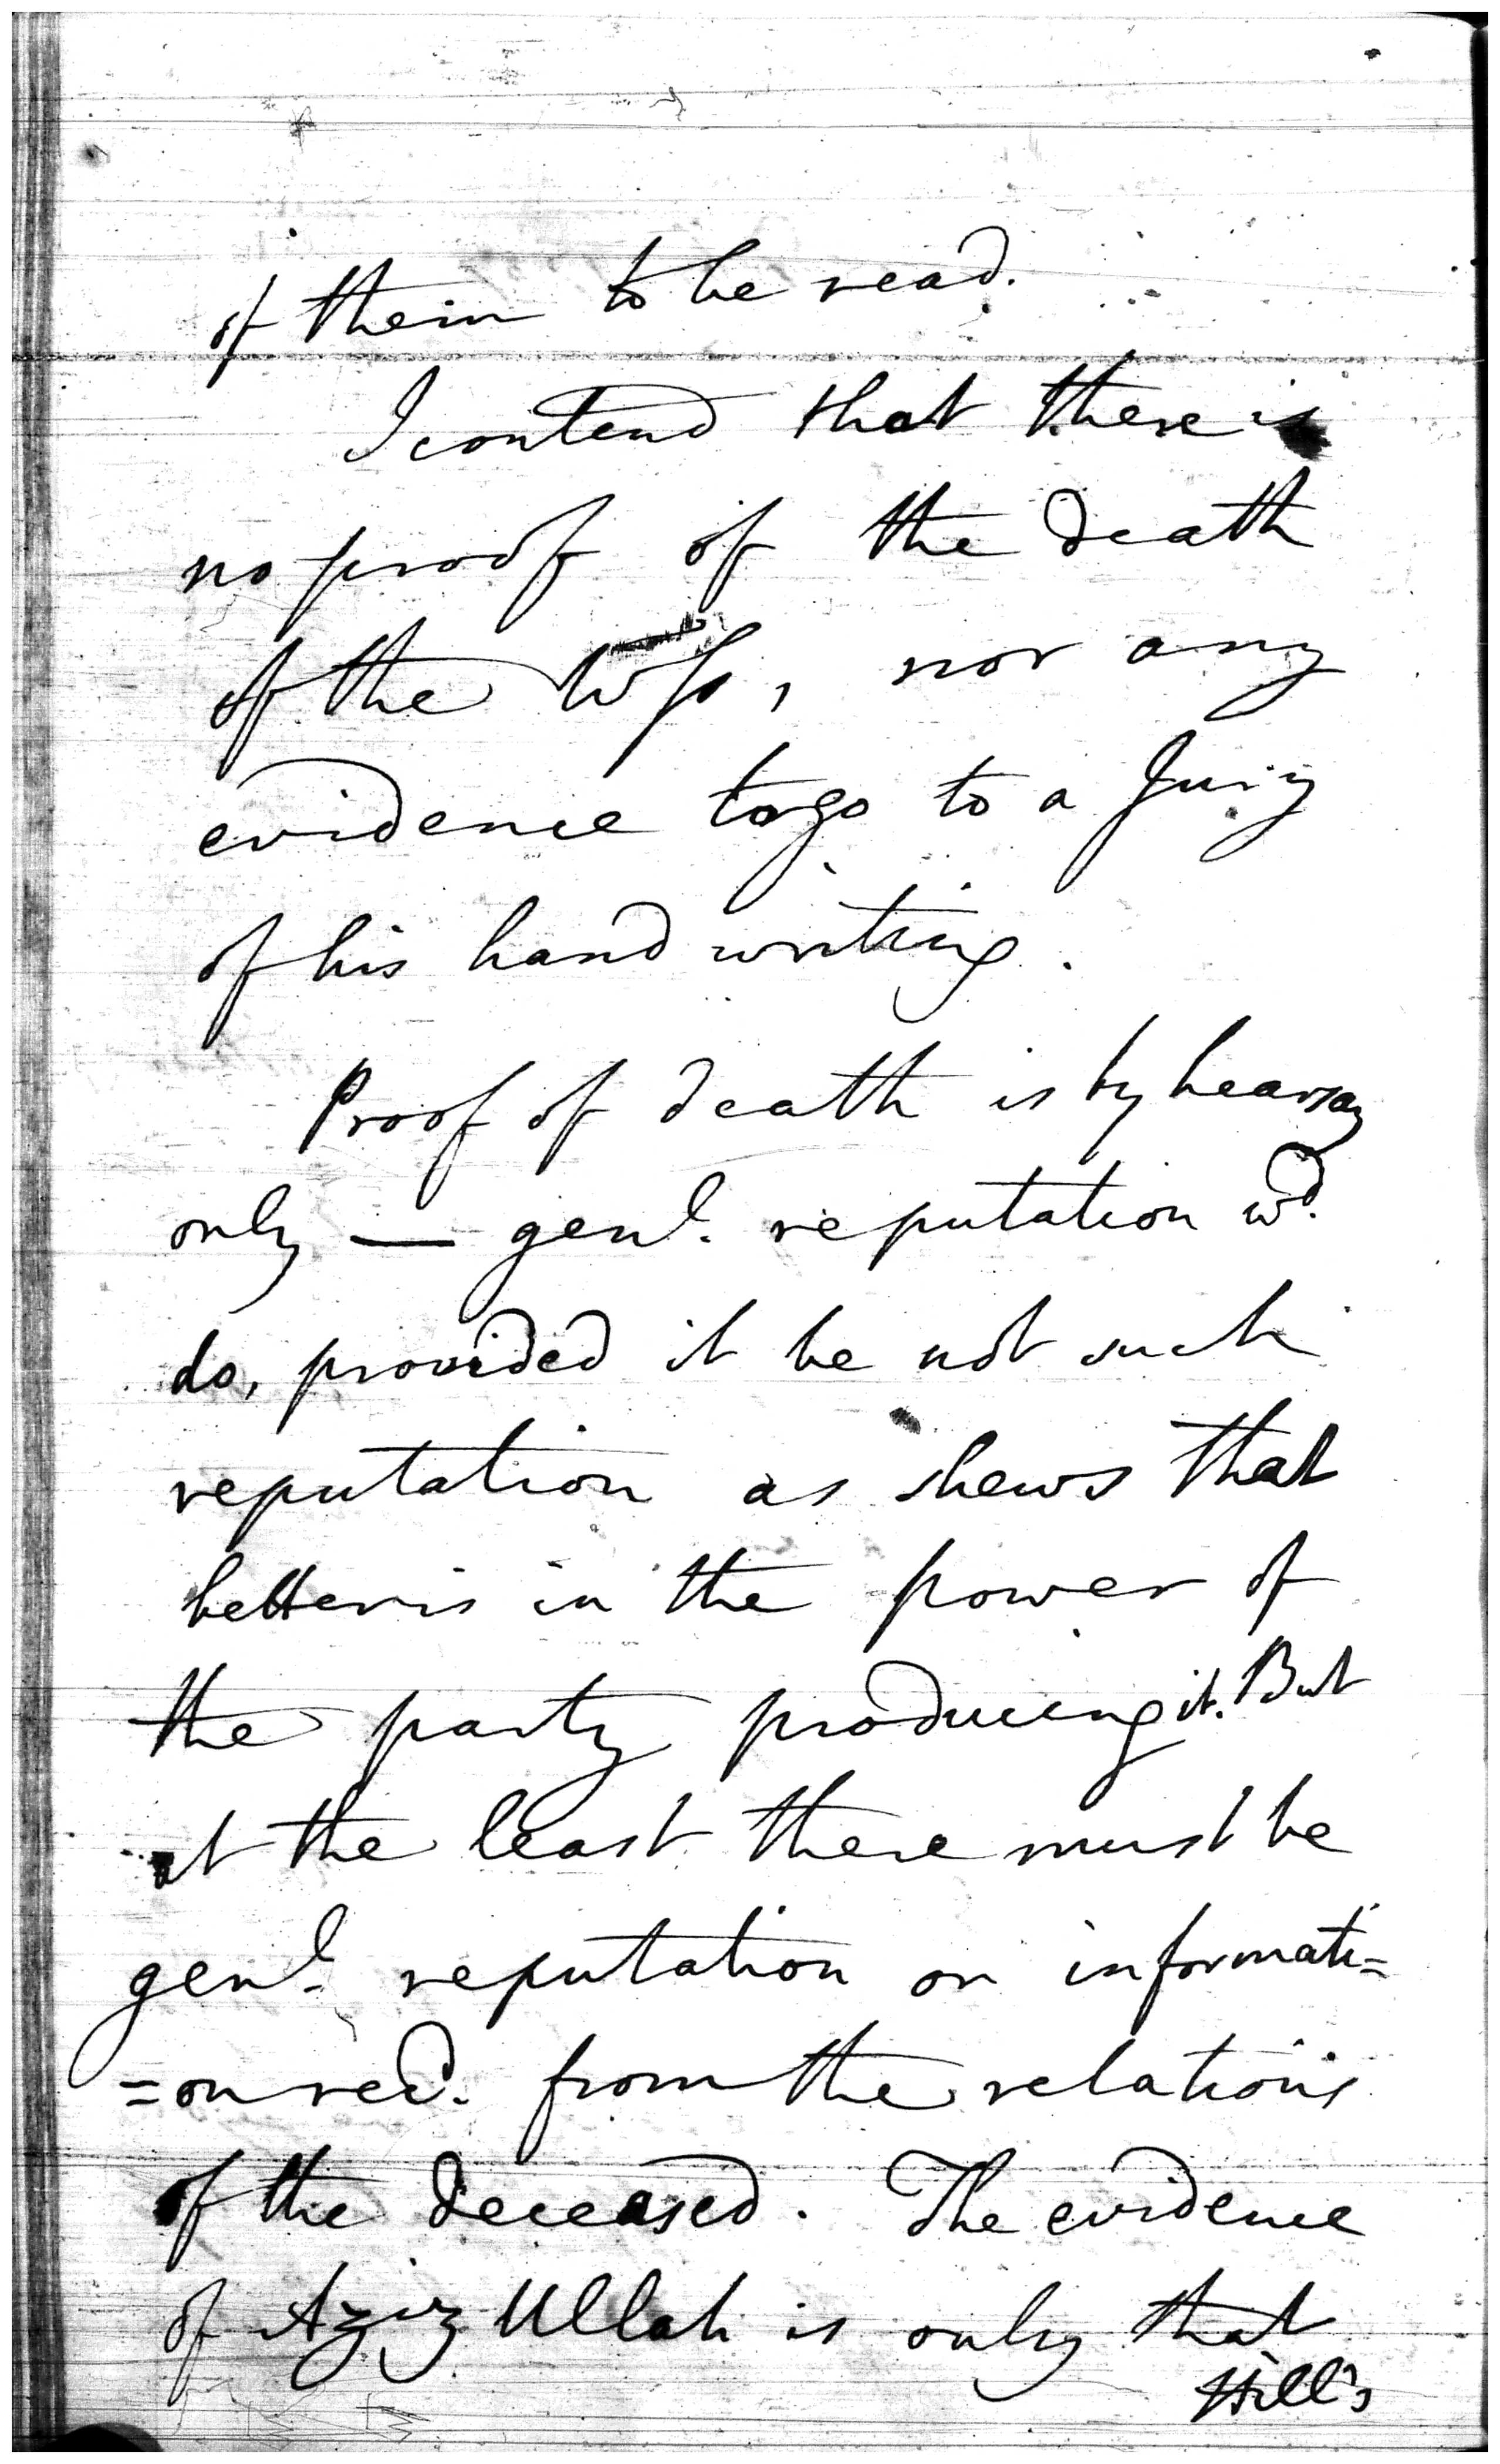 of them to be read.
I contend that there is
no proof of the death
of the Wss, nor any
evidence to go to a Jury
of his hand writing.
Proof of death is by hearsay
only — genl. reputation wd.
do, provided it be not such
reputation as shews that
better is in the power of
the party producing it. But
at the least there must be
genl. reputation or informati=
=on recd. from the relations
of the deceased. The evidence
of Aziz Ullah is only that
Hill's